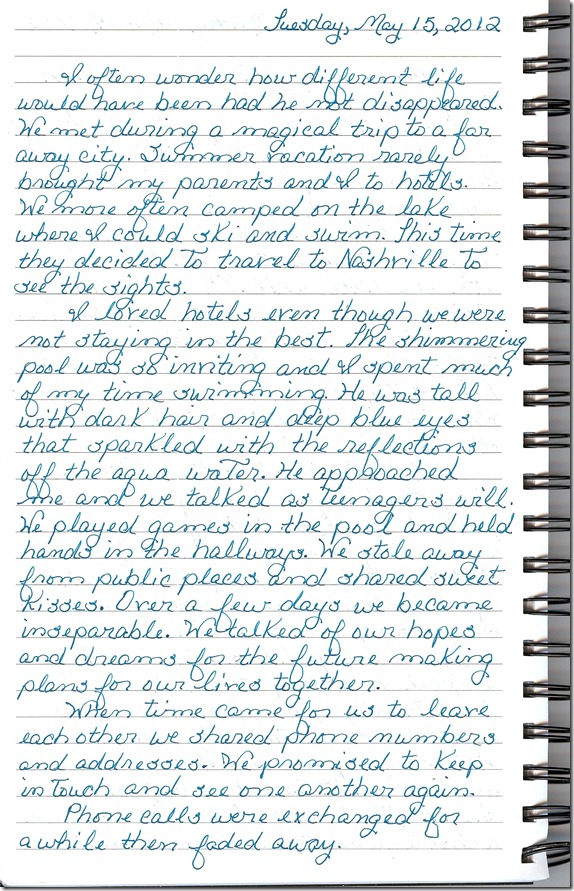 Tuesday, May 15, 2012
I often wonder how different life
would have been had he not disappeared.
We met during a magical trip to a far
away city. Summer vacation rarely
brought my parents and I to hotels.
We more often camped on the lake
where I could ski and swim. This time
they decided to travel to Nashville to
see the sights.
I loved hotels even though we were
not staying in the best. The shimmering
pool was so inviting and I spent much
of my time swimming. He was tall
with dark hair and deep blue eyes
that sparkled with the reflections
off the aqua water. He approached
me and we talked as teenagers will.
We played games in the pool and held
hands in the hallways. We stole away
from public places and shared sweet
kisses. Over a few days we became
inseparable. We talked of our hopes
and dreams for the future making
plans for our lives together.
When time came for us to leave
each other we shared phone numbers
and addresses. We promised to keep
in touch and see one another again.
Phone calls were exchanged for
awhile then faded away.